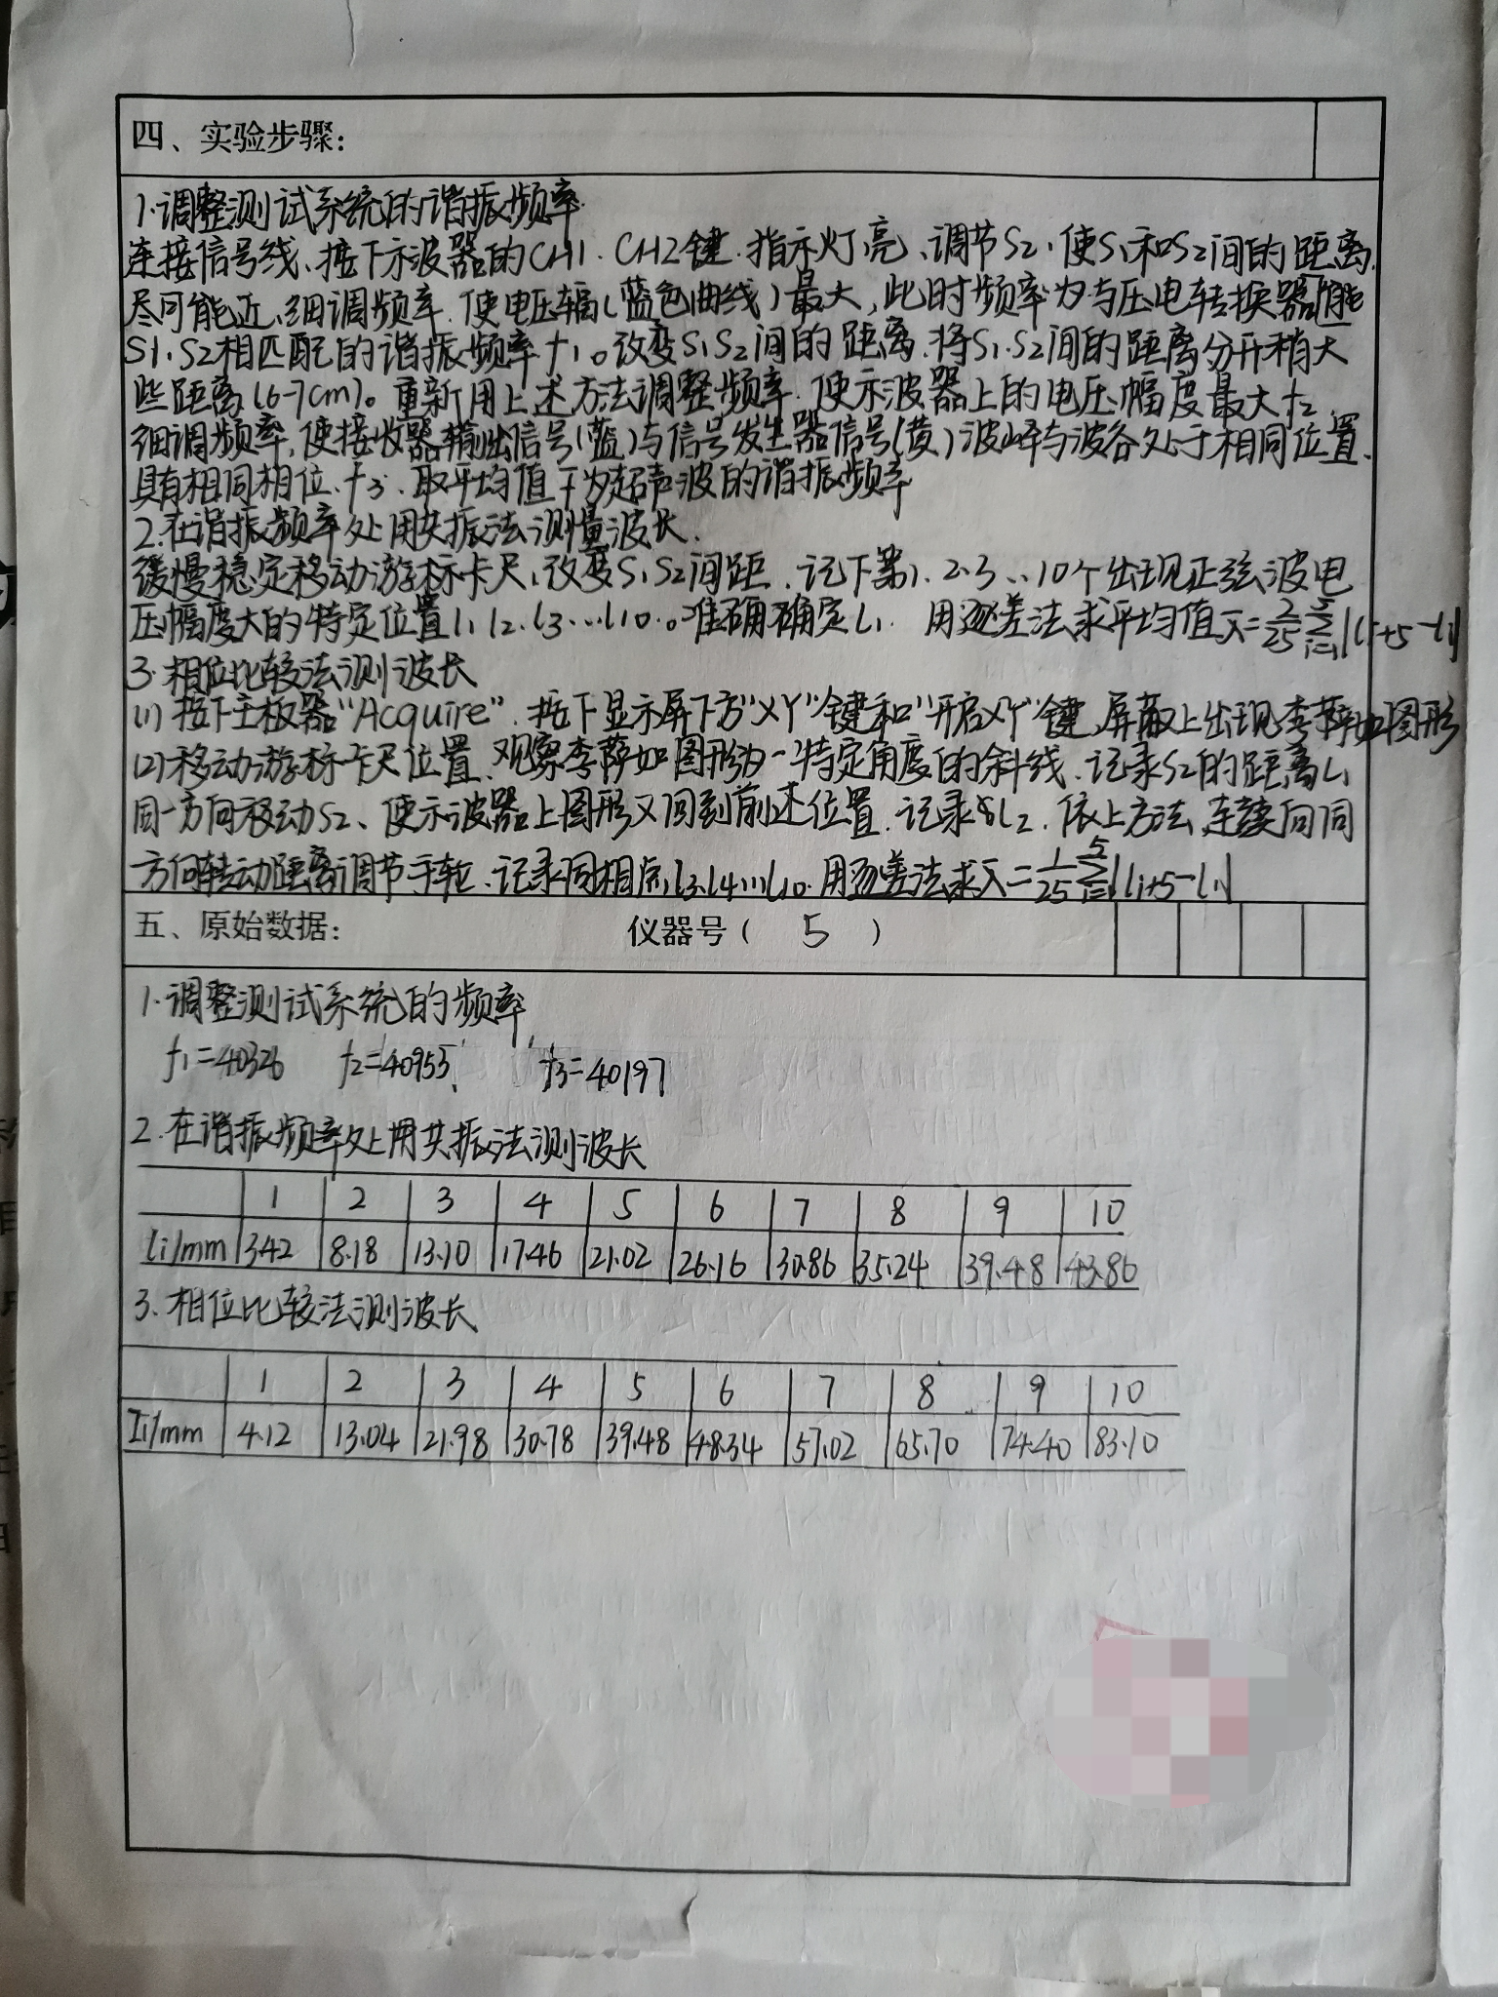 四、实验步骤:
1.调整测试系统的谐振频率
连接信号线、按下示波器的CH1.CH2键.指示灯亮、调节S2,使S1和S2间的距离
尽可能近、细调频率.使电压幅(蓝色曲线)最大,此时频率为与压电转换器
S1.S2相匹配的谐振频率f1。改变S1S2间的距离.将S1.S2间的距离分开稍大
些距离(6-7cm)。重新用上述方法调整频率.使示波器上的电压幅度最大f2
细调频率,使接收器输出信号(蓝)与信号发生器信号(黄)波峰与波谷处于相同位置.
具有相同相位.f3.取平均值f为超声波的谐振频率
2.在谐振频率处用共振法测量波长.
缓慢稳定移动游标卡尺,改变S1S2间距.记下第1.2.3...10个出现正弦波电
压幅度大的特定位置l1l2.l3...l10.。准确确定l1. 用逐差法求平均值λ̄=2/25 5∑i=1|li+5-li|
3.相位比较法测波长
(1)按下主板器"Acquire".按下显示屏下方"XY"键和"开启XY"键,屏幕上出现李萨如图形
(2)移动游标卡尺位置.观察李萨如图形为一特定角度的斜线.记录S2的距离L1
同一方向移动S2、使示波器上图形又回到前述位置.记录L2.依上方法,连续向同
方向转动距离调节手轮.记录同相点l3.l4...l10.用逐差法求λ̄=1/25 5∑i=1|li+5-li|
五、原始数据: 仪器号( 5 )
1.调整测试系统的频率
f1=40326 f2=40955 f3=40197
2.在谐振频率处用共振法测波长
1 2 3 4 5 6 7 8 9 10
li/mm 3.42 8.18 13.10 17.46 21.02 26.16 30.86 35.24 39.48 43.86
3.相位比较法测波长
1 2 3 4 5 6 7 8 9 10
Ii/mm 4.12 13.04 21.98 30.78 39.48 48.34 57.02 65.70 74.40 83.10